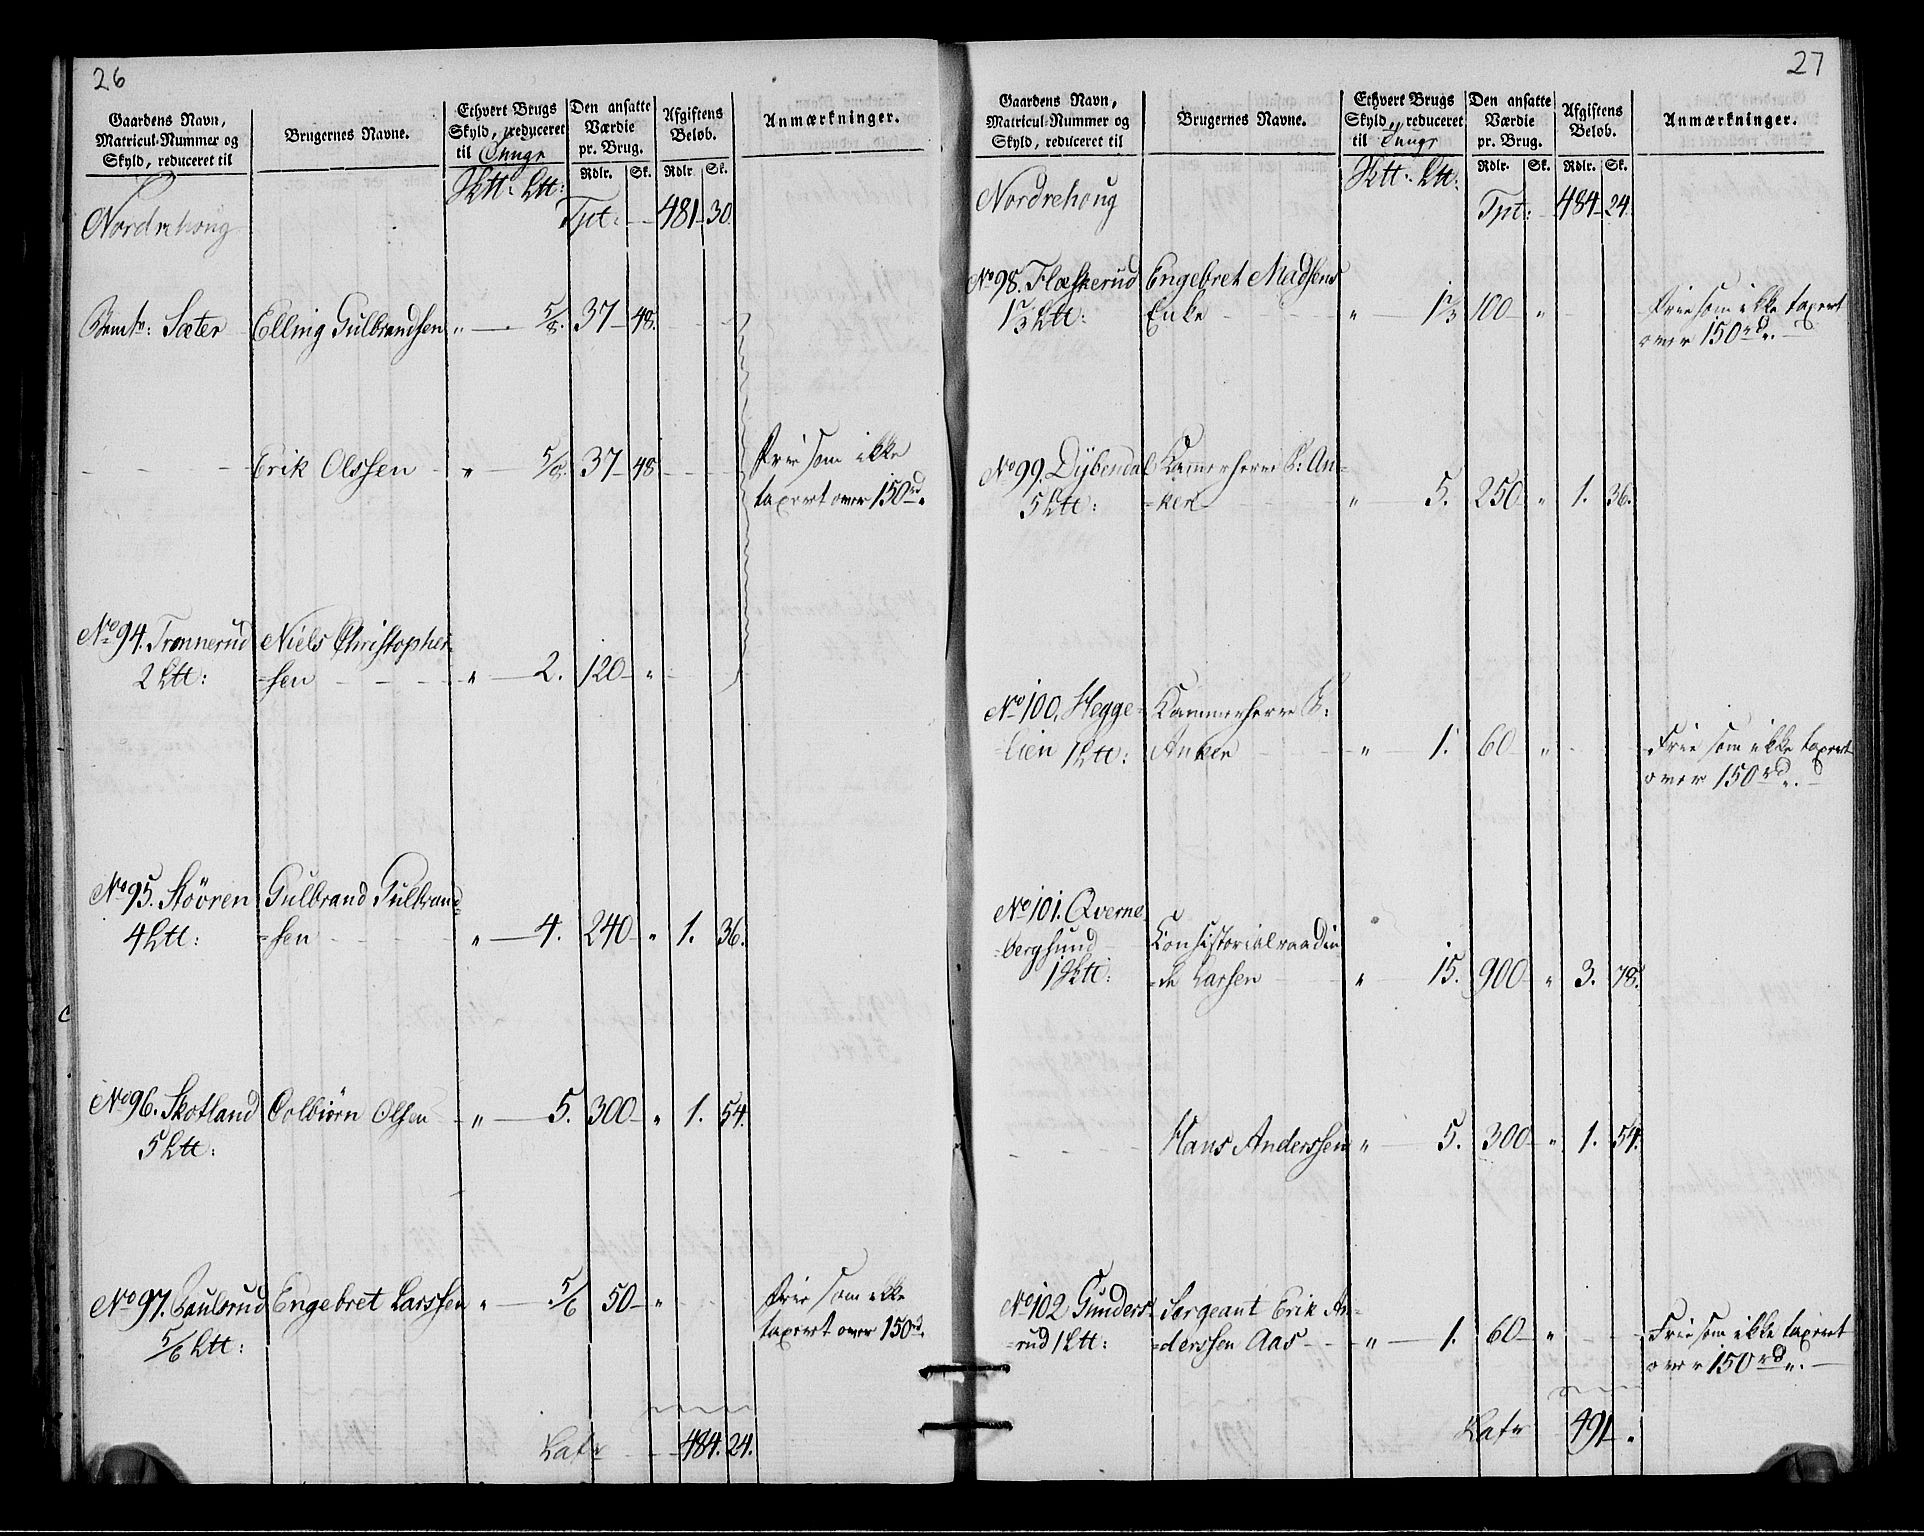 26
Gaardens Navn, Matricul-Nummer og Skyld, reduceret til
Brugernes Navne.
Ethvert Brugs Skyld, reduceret til Tunge
Den ansatte Værdie pr. Brug.
Afgiftens Beløb.
Anmærkninger.
Rdlr. Sk. Rdlr. Sk.
Nordrehoug Tpt: 481 30.
Sæter Elling Gulbrandsen " 5/8. 37 48.
Erik Olssen " 5/8. 37 48 Frie som ikke
taxert over 150 rd.
No 94. Tronnerud Niels Christopher-
2 Htt: =sen " 2. 120 "
No 95. Stövren Gulbrand Gulbrand=
4 Htt: =sen " 4. 240 " 1. 36.
No 96. Skotland Colbiörn Olsen " 5. 300 " 1. 54.
5 Htt:
No 97. Paulsrud Engebret Larssen " 5/6 50 " Frie som ikke
5/6 Htt: taxert over 150 rd.
Latr 484. 24.
27
Gaardens Navn, Matricul-Nummer og Skyld, reduceret til
Brugernes Navne.
Ethvert Brugs Skyld, reduceret til Tunge
Den ansatte Værdie pr. Brug.
Afgiftens Beløb.
Anmærkninger.
Rdlr. Sk. Rdlr. Sk.
Nordrehoug Tpt: 484 24.
No 98. Flæskerud Engebret Madsens
1 1/3 Htt: Enke " 1 1/3 100 " Frie som ikke taxert
over 150 rd.
No 99. Dybendal Kammerherre P: An=
5 Htt: =ker " 5. 250 " 1. 36.
No 100. Hegge= Kammerherre P:
=lien 1 Htt: Anker " 1. 60 " Frie som ikke taxert
over 150 rd.
No 101. Qverne=
=bergsund Consistorialraadin
=de Larsen " 15. 900 " 3. 78.
Hans Anderssen " 5. 300 " 1. 54.
No 102 Gunders= Sergeant Erik An=
=rud 1 Htt: =derssen Aas " 1. 60 " Frie som ikke taxert
over 150 rd.
Latr 491 "